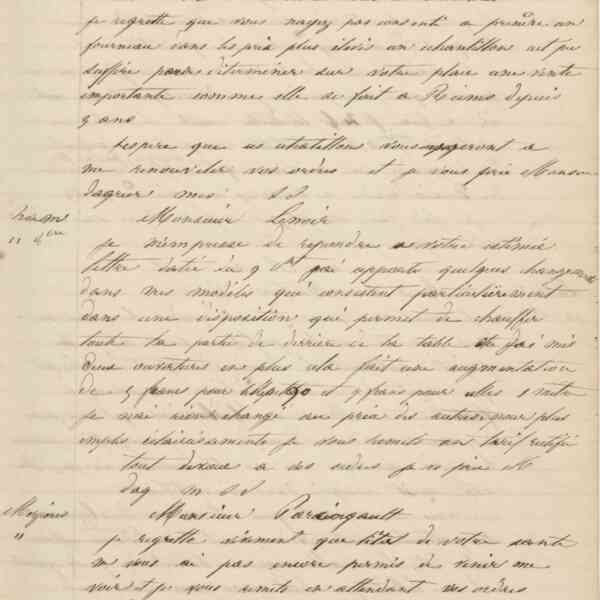 je regrette que vous n'ayez pas consenti a prendre un
fourneau dans les prix plus élevés un echantillon eut pu
suffire pour déterminer sur votre place une vente
importante comme elle se fait a Reims depuis
3 ans
J'espere que ces echatillons vous a
me renouveler vos ordres et je vous prie Monsieur
dagreer mes S S
Monsieur Lenoir
je m'empresse de repondre a votre estimée
lettre datée du 9 jai apporté quelques changements
dans mes modéles qui consistent particulièrement
dans une disposition qui permet de chauffer
toute la partie de derrière de la table Jai mis
deux ouvertures en plus cela fait une augmentation
de 5 francs pour et francs pour celles 1 metre
je nai rien changé au prix des autres pour plus
amples éclaircissements je vous remets un tarif rectifié
tout devoué a vos ordres je vs prie de
dag m S S
Mezieres
Monsieur
"
je regrette vraiment que létat de votre santé
ne vous ai pas encore permis de venir me
voir et je vous remets en attendant vos ordres